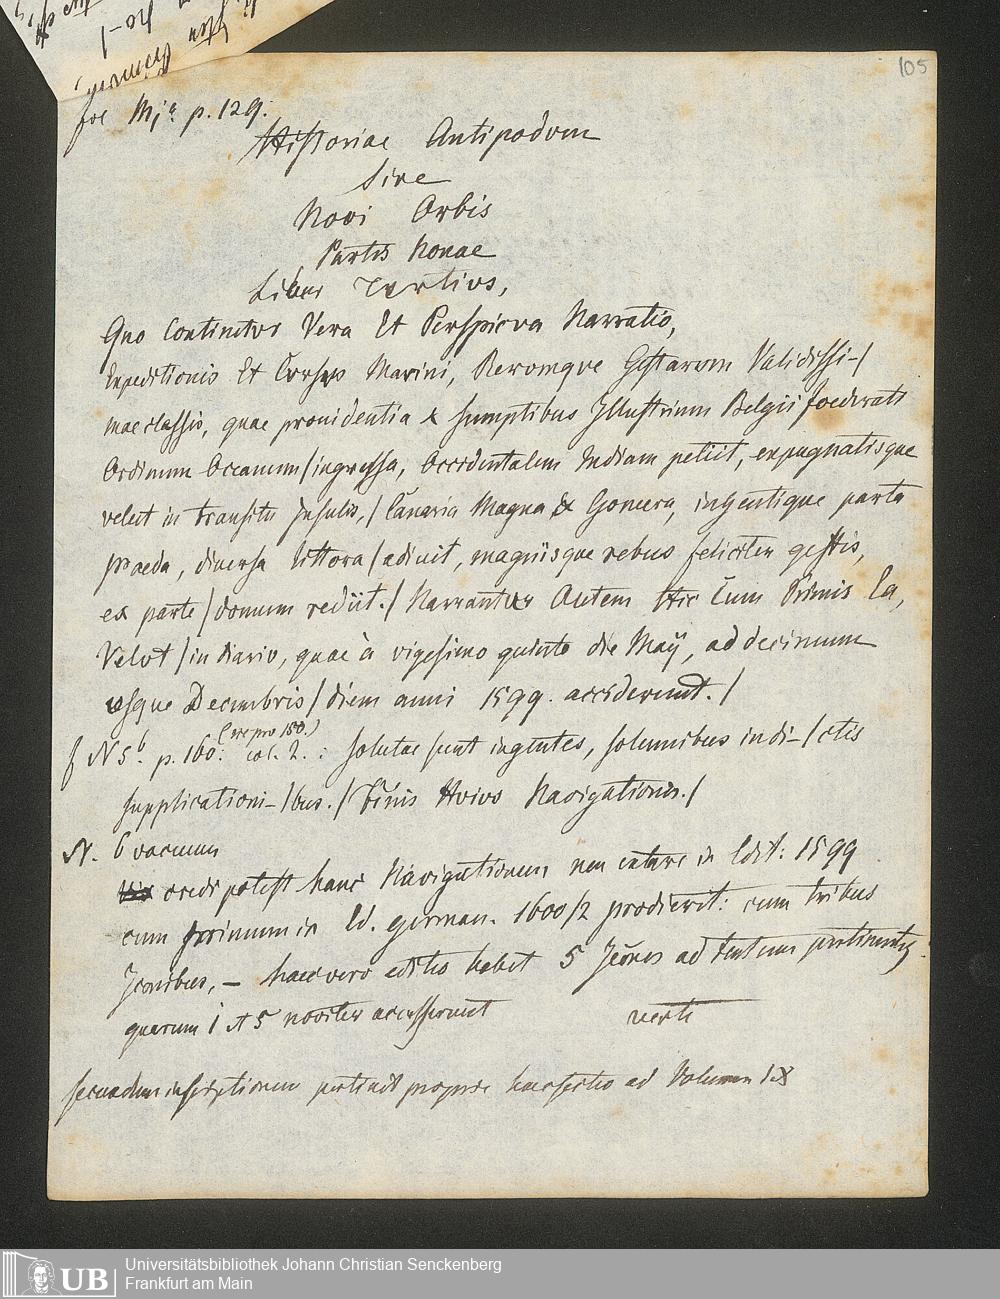 105
fol Mj a p. 129.
Historiae Antipodum
Sive
Novi Orbis
Partis Nonae
Liber Tertivs,
Quo Continetvr Vera Et Perspicva Narratio,
Expeditionis Et Cvrsvs Marini, Reromqve Gestarvm Validissi-/
mae classis, quae prouidentia & sumptibus Illustrium Belgii foederati
Ordinum Oceanum/ingressa, Occidentalem Indiam petiit, expugnatisque
velut in transitu Insulis,/Canaria Magna & Gomera, ingentique parta
praeda, diuersa littora/adiuit, magnisque rebus feliciter gestis,
ex parte/domum rediit./Narrantvr Autem Hic Cum Primis Ea,
Velvt/in diario, quae à vigesimo quinto die Maÿ, ad decimum
usque Decembris/diem anni 1599. acciderunt./
f N5b. p. 160. col. 2.: solutae sunt ingentes, solemnibus indi-/ctis
supplicationi-/bus./Finis Hvivs Navigationis./
N. 6 vacuum
potest hanc Navigationem non extare in Edit: 1599
cum primum in Ed. german. 1600/2 prodierit: cum tribus
Iconibus, – haec vero editio habet 5 Icones ad textum pertinentes
quarum 1 et 5 noviter accesserunt verte
secundum inscriptionem pertinet proprie haec sectio ad Volumen IX
Universitätsbibliothek Johann Christian Senckenberg
Frankfurt am Main
UB